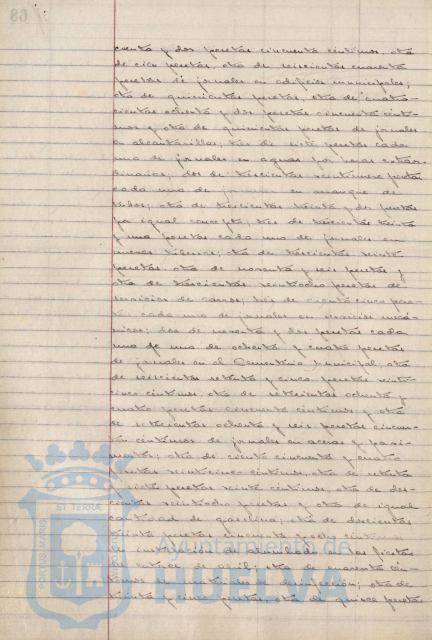 cuenta y dos pesetas cincuenta céntimos, otra
de cien pesetas, otra de seiscientas cuarenta
pesetas de jornales en edificios municipales;
otra de quinientas pesetas, otra de cuatro-
cientas ochenta y dos pesetas cincuenta cénti-
mos y otra de quinientas pesetas de jornales
en alcantarillas; tres de siete pesetas cada
una de jornales en aguas por horas extraor-
dinarias; dos de trescientas veintinueve pesetas
cada una de jornales en arranque de
otra de trescientas treinta y dos pesetas
por igual concepto; tres de trescientas treinta
y una pesetas cada una de jornales en
otra de trescientas veinte
pesetas, otra de noventa y seis pesetas y
otra de trescientas veintiocho pesetas de
servicios de carros; tres de ciento cinco pese-
tas cada una de jornales en servicios mecá-
nicos; dos de noventa y dos pesetas cada
una y una de ochenta y cuatro pesetas
de jornales en el Cementerio Municipal; otra
de seiscientas setenta y cinco pesetas veinti-
cinco céntimos, otra de setecientas ochenta y
cuatro pesetas cincuenta céntimos y otra
de setecientas ochenta y seis pesetas cincuen-
ta céntimos de jornales en aceras y pavi-
mentos; otra de ciento cincuenta y cuatro
pesetas veinticinco céntimos, otra de setenta
y siete pesetas veinte céntimos, otra de dos-
cientas veintiocho pesetas y otra de igual
cantidad de gasolina; otra de doscientas
treinta pesetas cincuenta y ocho céntimos
de instalación de alumbrado en las fiestas
de catorce de abril; otra de cuarenta cén-
timos en materiales de desinfección; otra de
treinta y cinco pesetas, otra de quince pesetas
PORTUS MARIS
ET TERRÆ
Ayuntamiento de
HUELVA